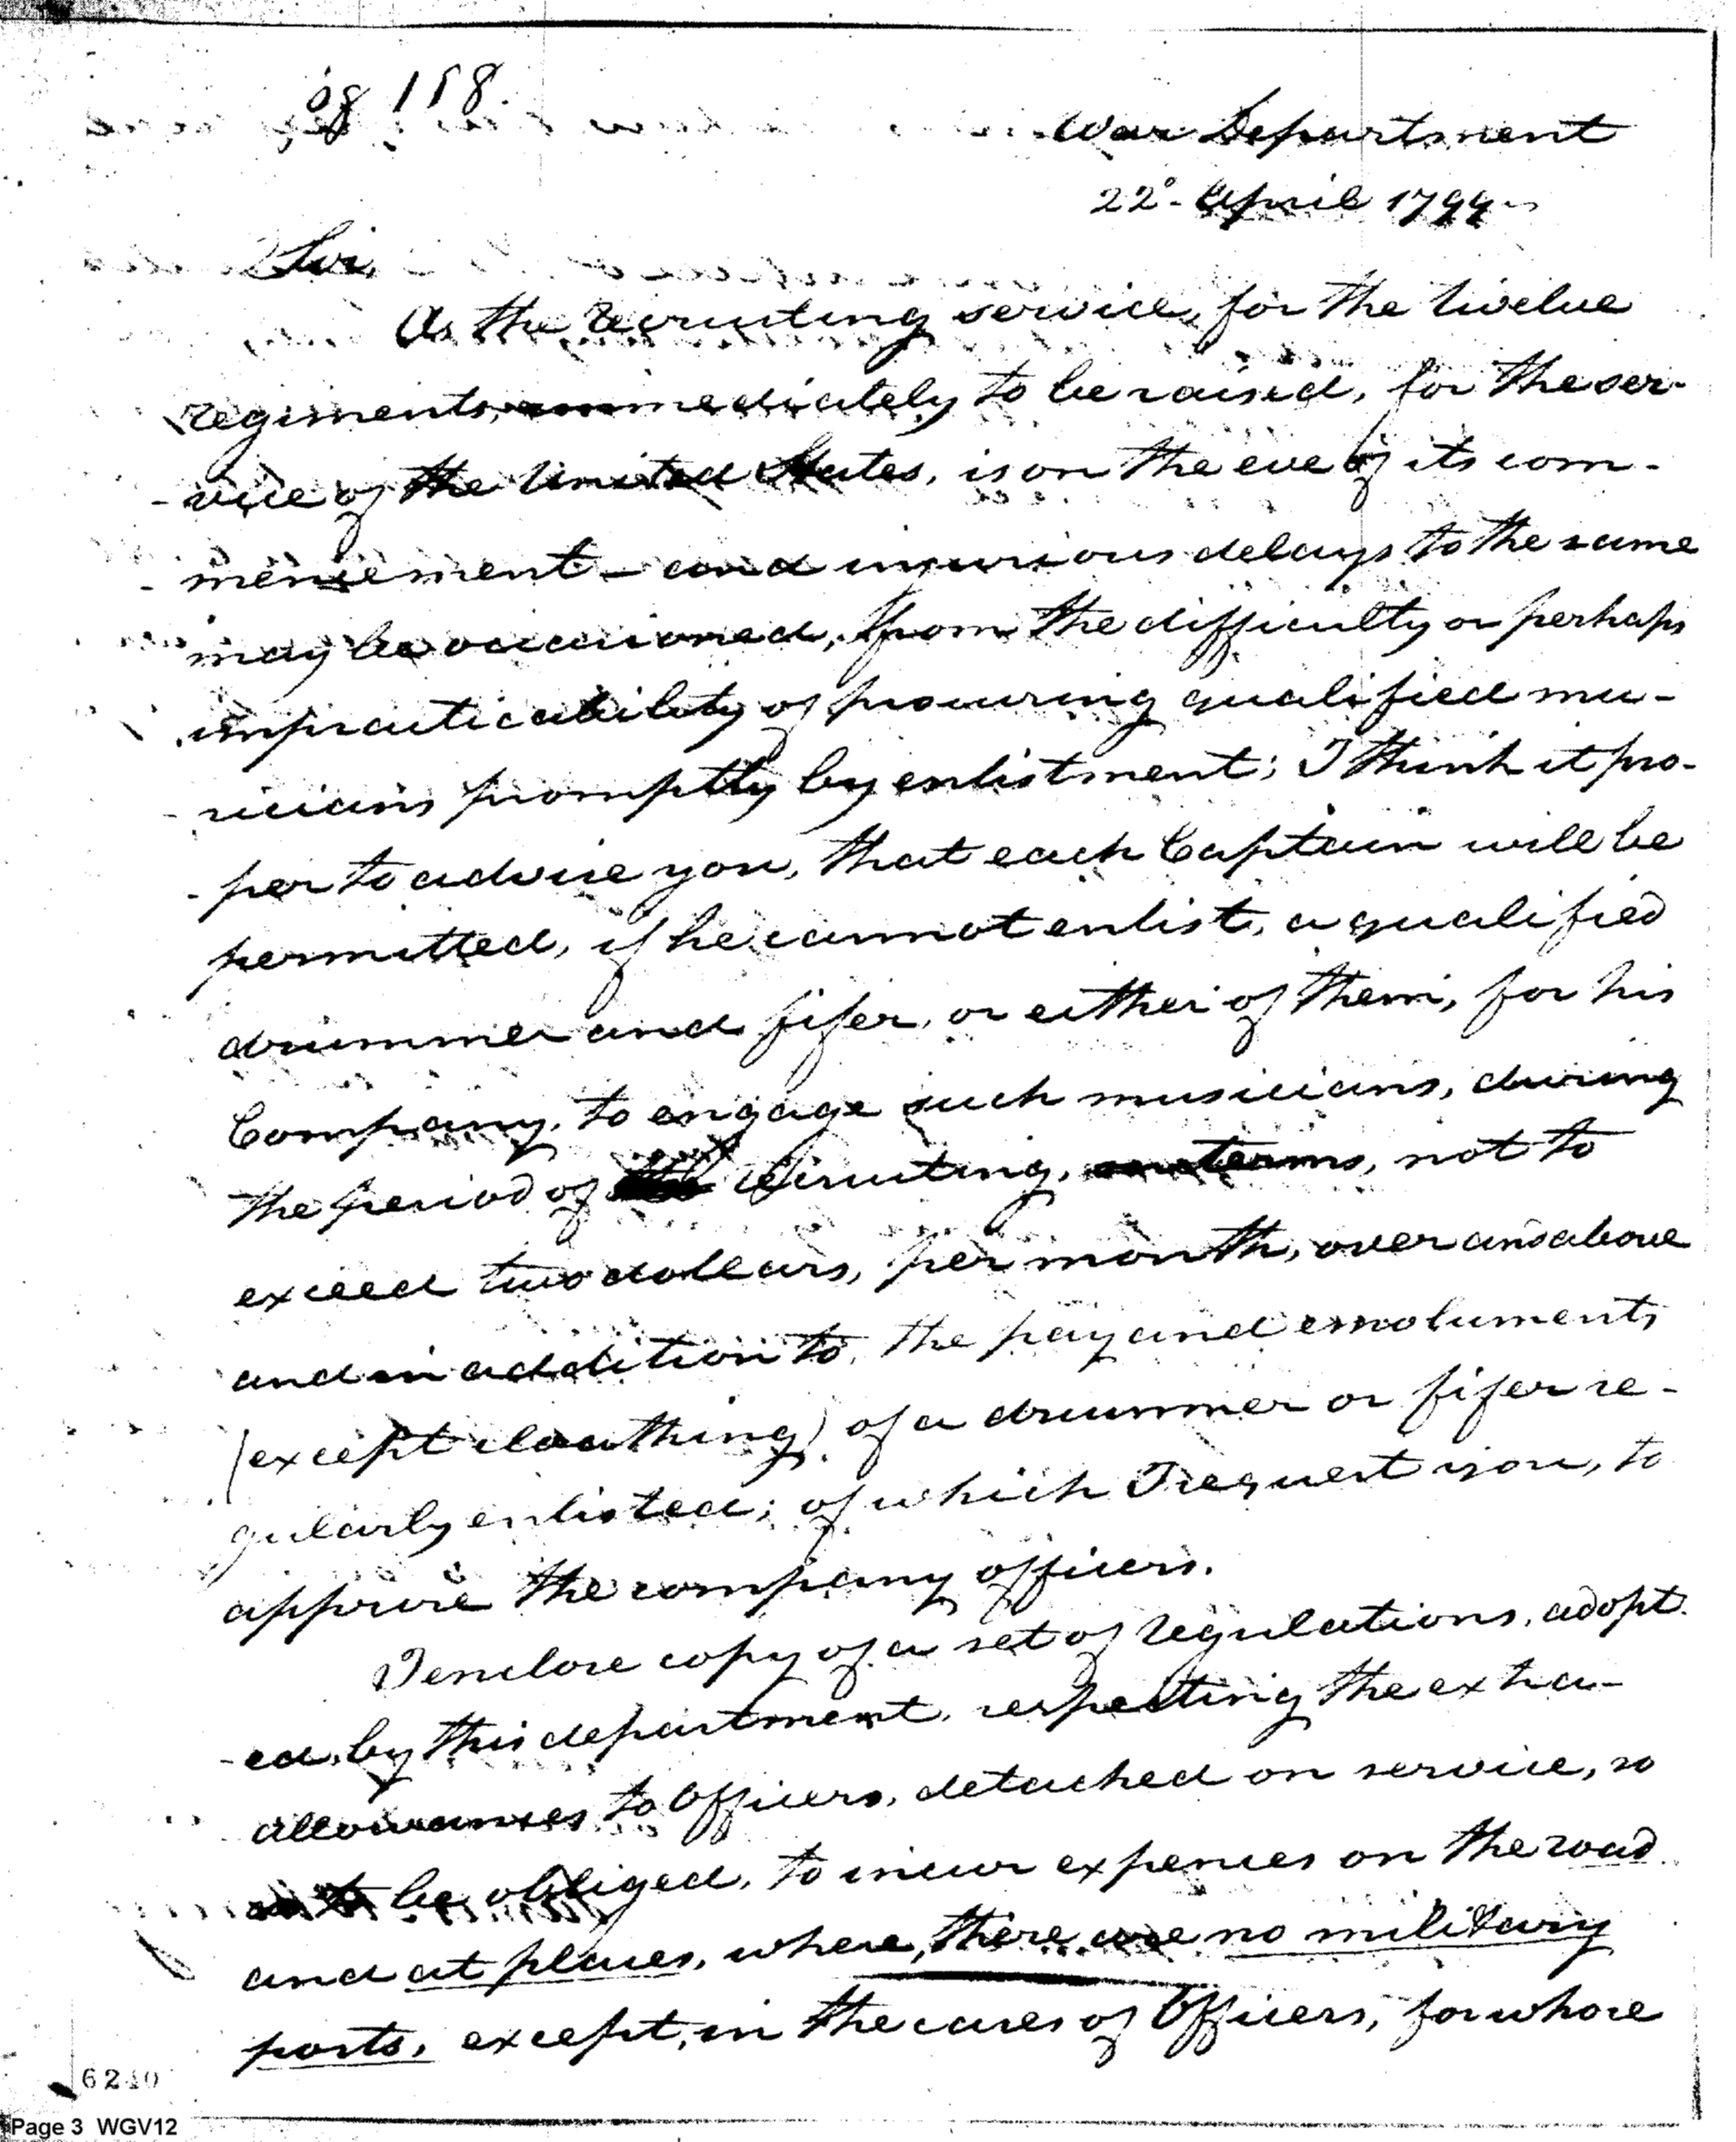 pg 158.
War Department
22d. April 1799
Sir,
As the recruiting service, for the twelve
regiments, immediately to be raised, for the ser-
-vice of the United States, is on the eve of its com-
-mencement - and injurious delays to the same
may be occasioned, from the difficulty or perhaps
impracticability of procuring qualified mu-
-sicians promptly by enlistment; I think it pro-
-per to advise you, that each Captain will be
permitted, if he cannot enlist, a qualified
drummer and fifer, or either of them, for his
Company, to engage such musicians, during
the period of recruiting, on terms, not to
exceed two dollars, per month, over and above
and in addition to, the pay and emoluments
(except cloathing) of a drummer or fifer re-
gularly enlisted; of which I request you, to
apprise the company officers.
I enclose copy of a set of regulations, adopt-
-ed, by this department, respecting the extra-
allowances to Officers, detached on service, so
as to be obliged, to incur expenses on the road
and at places, where, there are no military
posts, except, in the cases of Officers, for whose
6240
Page 3 WGV12